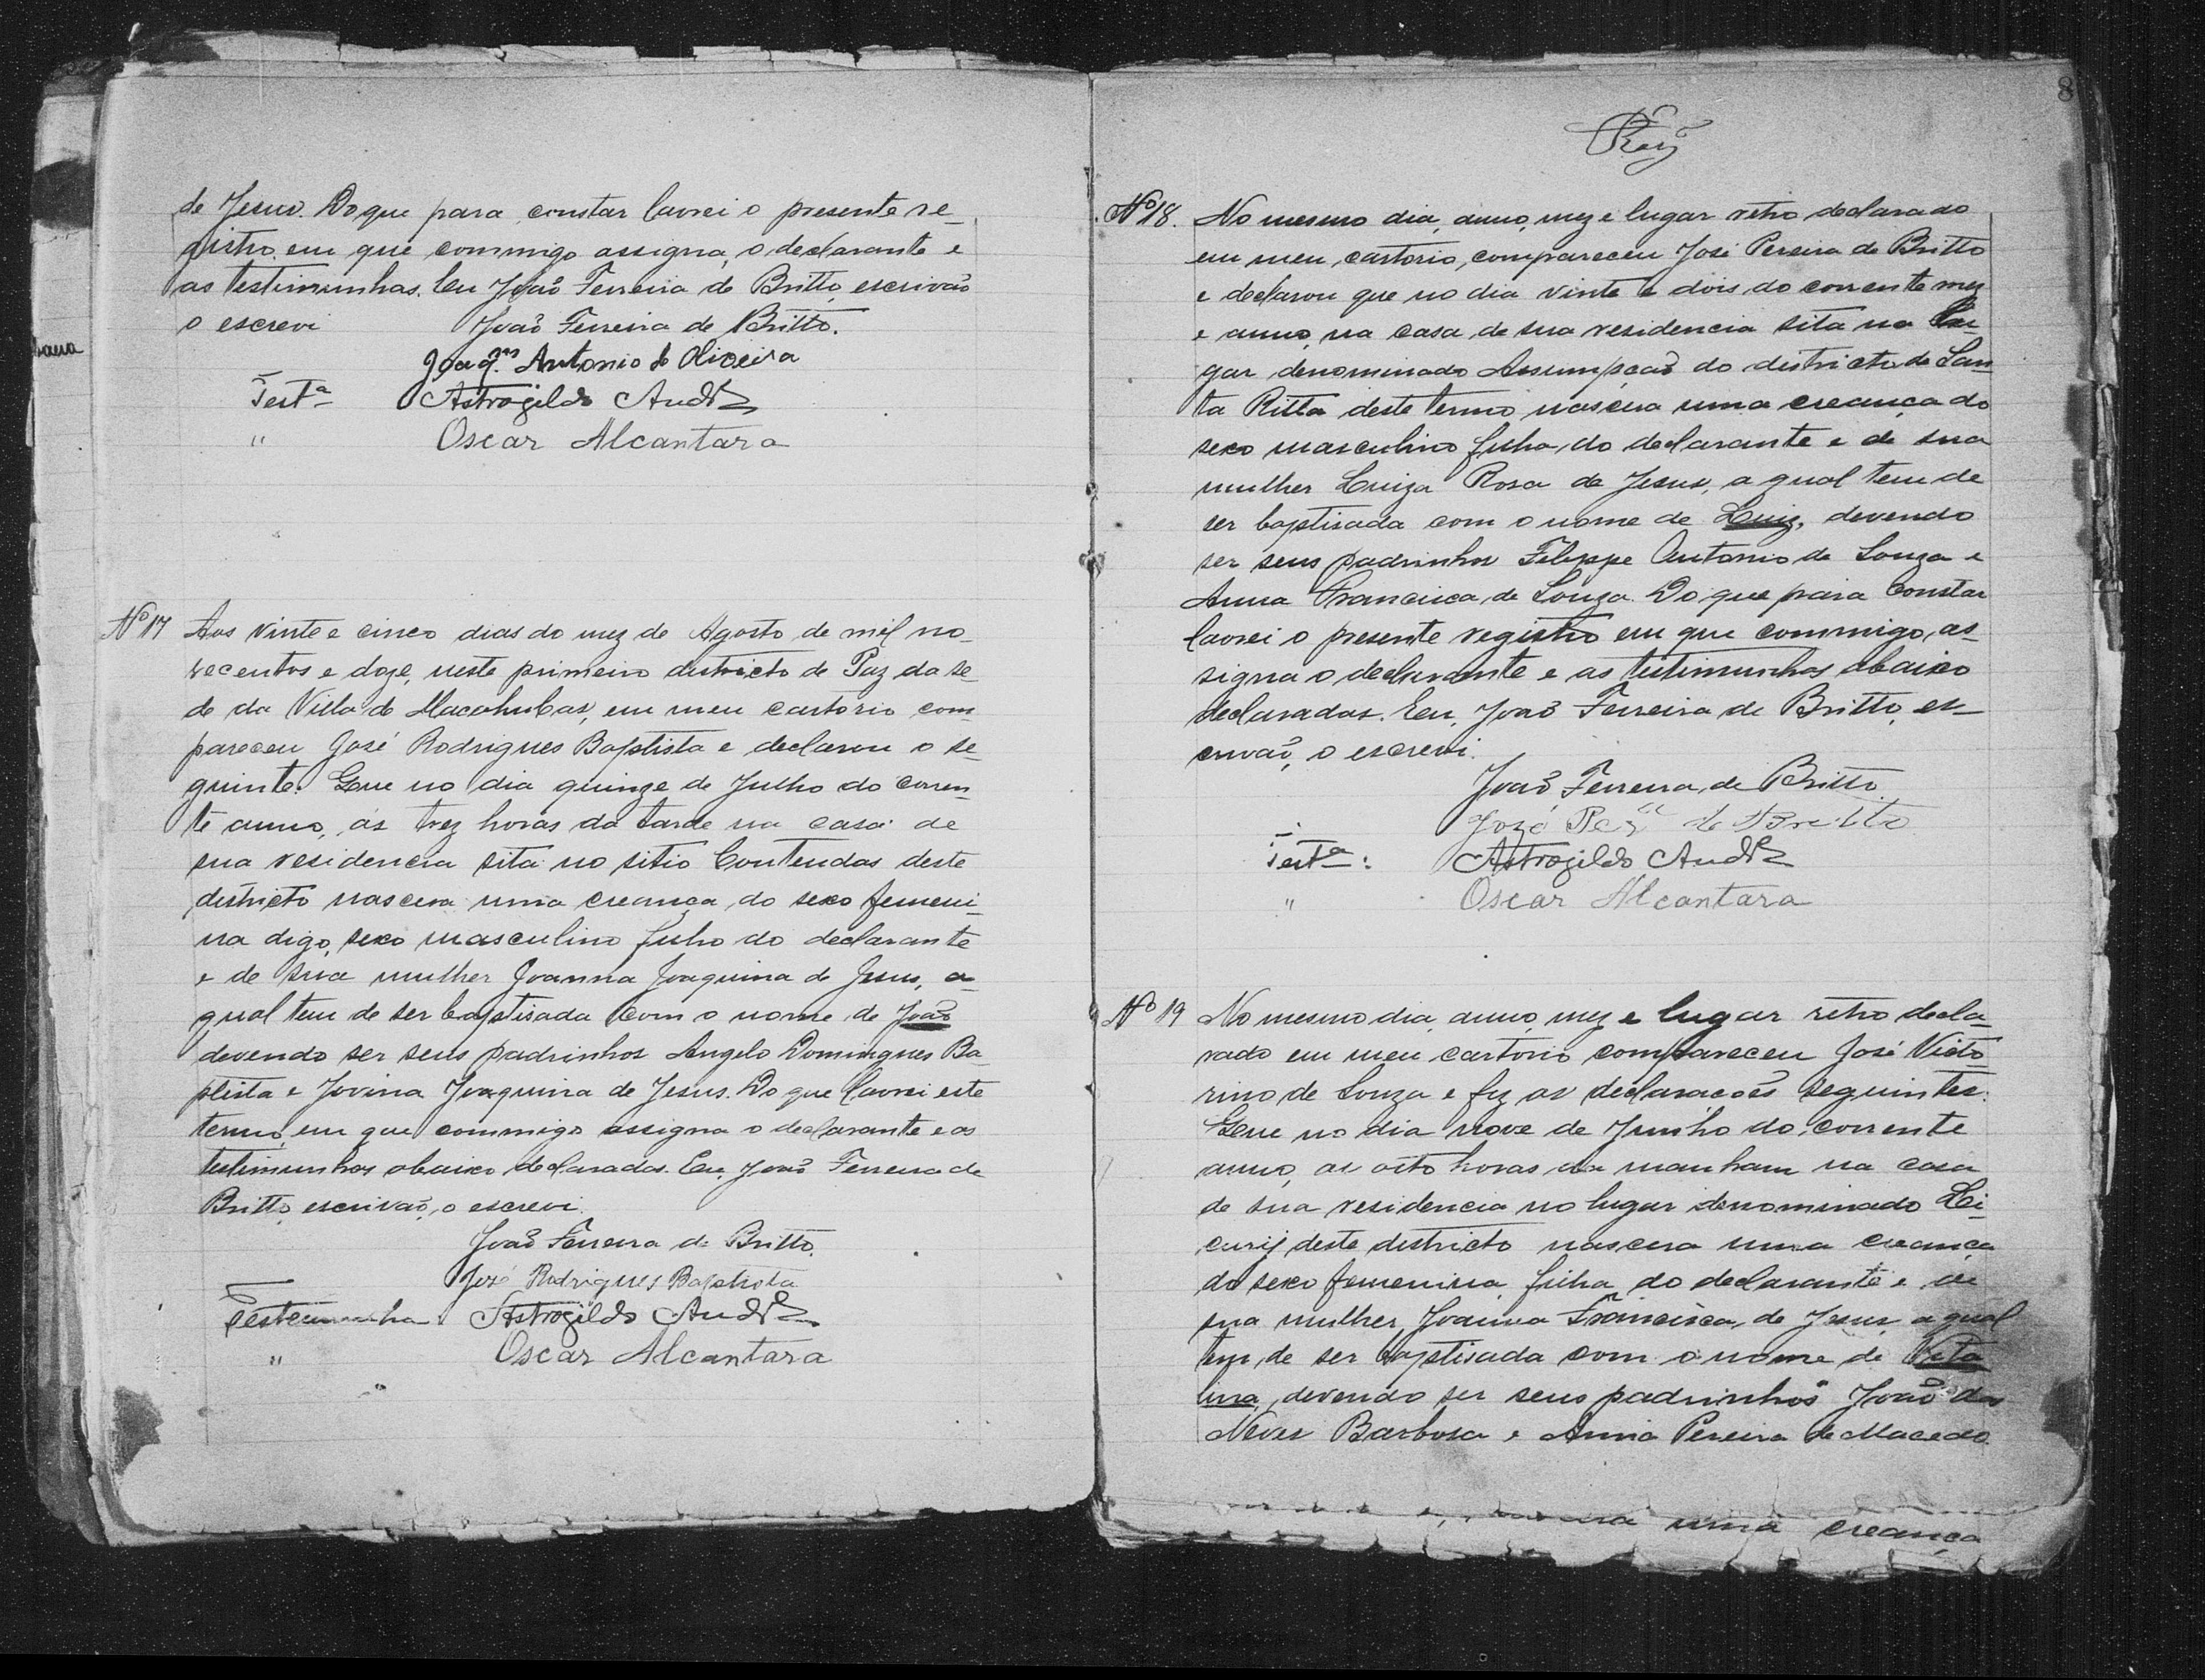 de Jesus. Do que para constar lavrei o presente re-
gistro em que commigo assigna, o declarante e
as testimunhas. Eu João Ferreira de Britto, escrivão
o escrevi João Ferreira de Britto.
Joaq.m Antonio de Oliveira
Test.a Astrogildo
" Oscar Alcantara
Nº 17 Aos vinte e cinco dias do mez de Agosto de mil no-
vecentos e doze, neste primeiro districto de Paz da se-
de da Villa de Macahubas, em meu cartorio com
pareceu José Rodrigues Baptista e declarou o se-
guinte. Que no dia quinze de Julho do corren-
te anno, as trez horas da tarde na casa de
sua residencia sita no sitio Contendas deste
districto nascera uma creança do sexo femeni-
na digo, sexo masculino filho do declarante
e de sua mulher Joanna Joaquina de Jesus, a
qual tem de ser baptisada com o nome de João
devendo ser seus padrinhos Angelo Domingues Ba-
ptista e Jovina Joaquina de Jesus. Do que lavrei este
termo, em que commigo assigna o declarante e as
testimunhas abaixo declaradas. Eu, João Ferreira de
Britto, escrivão, o escrevi.
João Ferreira de Britto.
José Rodrigues Baptista
Testemunha Astrogildo
" Oscar Alcantara
8
Nº 18. No mesmo dia, anno, mez e lugar retro declarado
em meu cartorio, compareceu José Pereira de Britto
e declarou que no dia vinte e dois do corrente mez
e anno, na casa de sua residencia sita no lu-
gar denominado Assumpção do districto de San
ta Ritta deste termo, nascera uma creança do
sexo masculino filha do declarante e de sua
mulher Luiza Rosa de Jesus, a qual tem de
ser baptisada com o nome de Luiz, devendo
ser seus padrinhos Felippe Antonio de Souza e
Anna Francisca de Souza. Do que para constar
lavrei o presente registro em que commigo, as-
signa o declarante e as testimunhas abaixo
declaradas. Eu, João Ferreira de Britto, es-
crivão, o escrevi.
João Ferreira de Britto.
José Per.a de Britto
Test.a: Astrogildo
" Oscar Alcantara
Nº 19 No mesmo dia, anno, mez e lugar retro decla-
rado em meu cartorio compareceu José Victo
rino de Souza e fez as declarações seguintes:
Que no dia nove de Junho do corrente
anno, as oito horas da manham na casa
de sua residencia no lugar denominado Lei-
curij deste districto nascera uma creança
do sexo femenina filha do declarante e de
sua mulher Joanna Francisca de Jesus a qual
tem de ser baptisada com o nome de Vita
lina, devendo ser seus padrinhos João das
Neves Barbosa e Anna Pereira de Macedo.
uma creança